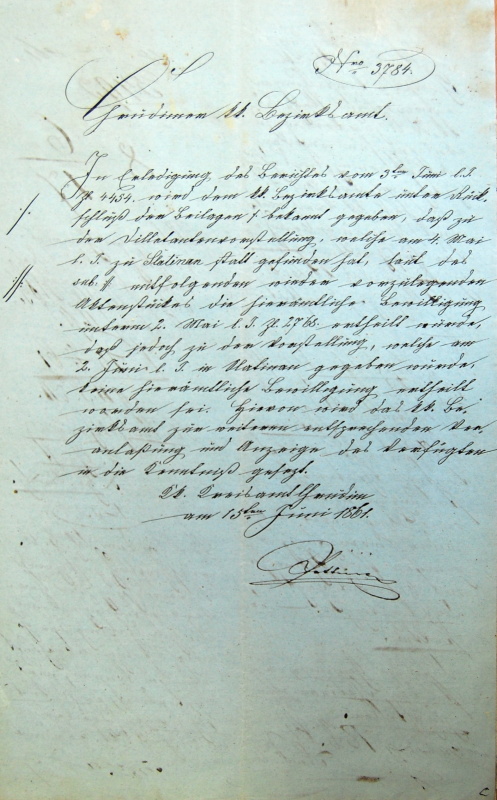 Nro 3784.
Chrudimer kk. Bezirksamt.
In Erledigung des Berichtes vom 3ten Juni l. J.
Z. 4454. wird dem kk. Bezirksamte unter Rück-
/. schluß der Beilagen /. bekannt gegeben, daß zu
der Dilletantenvorstellung, welche am 4. Mai
//. l. J. zu Slatinan statt gefunden hat, laut des
sub. // mitfolgenden wieder vorzulegenden
Aktenstückes die hierämtliche Bewilligung
unterm 2. Mai l. J. Z. 2765. ertheilt wurde,
daß jedoch zu der Vorstellung, welche am
2. Juni l. J. in Slatinan gegeben wurde,
keine hierämtliche Bewilligung ertheilt
worden sei. Hievon wird das kk. Be-
zirksamt zur weiteren entsprechenden Ver-
anlaßung und Anzeige des Verfügten
in die Kenntniß gesezt.
Kk. Kreisamt Chrudim
am 15ten Juni 1861.